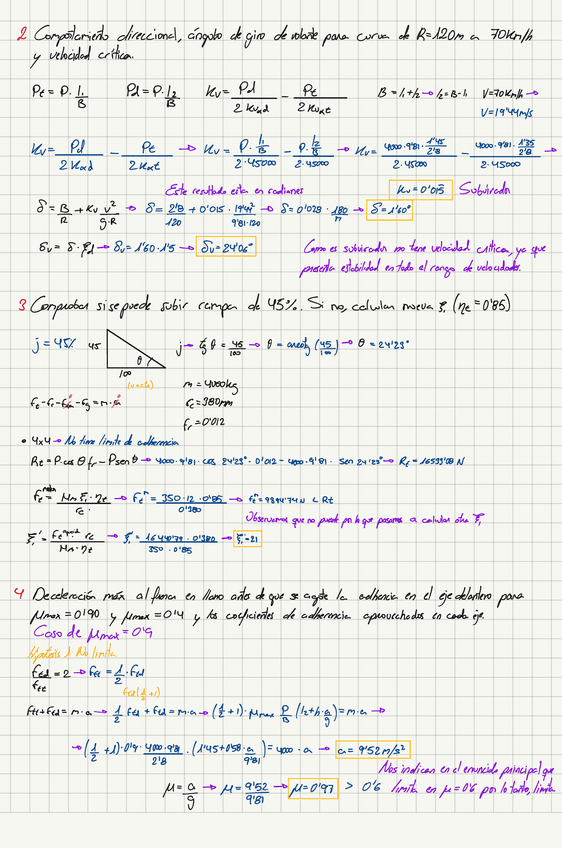 2 Comportamiento direccional, ángulo de giro de volante para curva de R=120m a 70Km/h
y velocidad crítica.
Pt = P · l1/B   Pd = P · l2/B   Kv = Pd/(2 Kαd) - Pt/(2 Kαt)   B = l1 + l2 → l2 = B - l1   V=70Km/h →
V=19'44m/s
Kv = Pd/(2 Kαd) - Pt/(2 Kαt) → Kv = (P · l1/B)/(2·45000) - (P · l2/B)/(2·45000) → Kv = (4000·9'81 · 1'45/2'8)/(2·45000) - (4000·9'81 · 1'35/2'8)/(2·45000) →
Este resultado esta en radianes
Kv = 0'015 Subvirador
δ = B/R + Kv v²/(g·R) → δ = 2'8/120 + 0'015 · 19'44²/(9'81·120) → δ = 0'028 · 180/π → δ = 1'60°
δv = δ · ξd → δv = 1'60 · 1'5 → δv = 24'06°
Como es subvirador no tiene velocidad crítica, ya que
presenta estabilidad en todo el rango de velocidades.
3 Comprobar si se puede subir rampa de 45%. Si no, calcular nueva ξ1 (ηt = 0'85)
j = 45%   45   θ   100   j → tg θ = 45/100 → θ = arcotg (45/100) → θ = 24'23°
m = 4000kg
Ft - Fr - Fda - Fg = m · a
rc = 380mm
fr = 0'012
• 4x4 → No tiene límite de adherencia
Rt = P·cos θ fr - P sen θ → 4000·9'81 · cos 24'23° · 0'012 - 4000·9'81 · sen 24'23° → Rt = 16539'08 N
Ft = Mm ξ1 · ηt / rc → Ft = 350 · 12 · 0'85 / 0'380 → Ft = 9394'74 N < Rt
Observamos que no puede por lo que pasamos a calcular otra ξ1
ξ1' = Ft rc / Mm · ηt → ξ1' = 0'380 / 350 · 0'85 → ξ1' = 21
4 Deceleración máx al frenar en llano antes de que se agote la adherencia en el eje delantero para
μmax = 0'90 y μmax = 0'4 y los coeficientes de adherencia aprovechados en cada eje.
Caso de μmax = 0'9
hipótesis 1 No limita
Ffd/Fft = 2 → Fft = 1/2 · Ffd
Ffd(1/2 + 1)
Fft + Ffd = m · a → 1/2 Ffd + Ffd = m·a → (1/2 + 1) · μmax P/B (l2 + h · a/g) = m · a →
→ (1/2 + 1) · 0'9 · 4000·9'81/2'8 · (1'45 + 0'58 · a/9'81) = 4000 · a → a = 9'52 m/s²
Nos indican en el enunciado principal que
μ = a/g → μ = 9'52/9'81 → μ = 0'97 > 0'6 limita en μ = 0'6 por lo tanto, limita